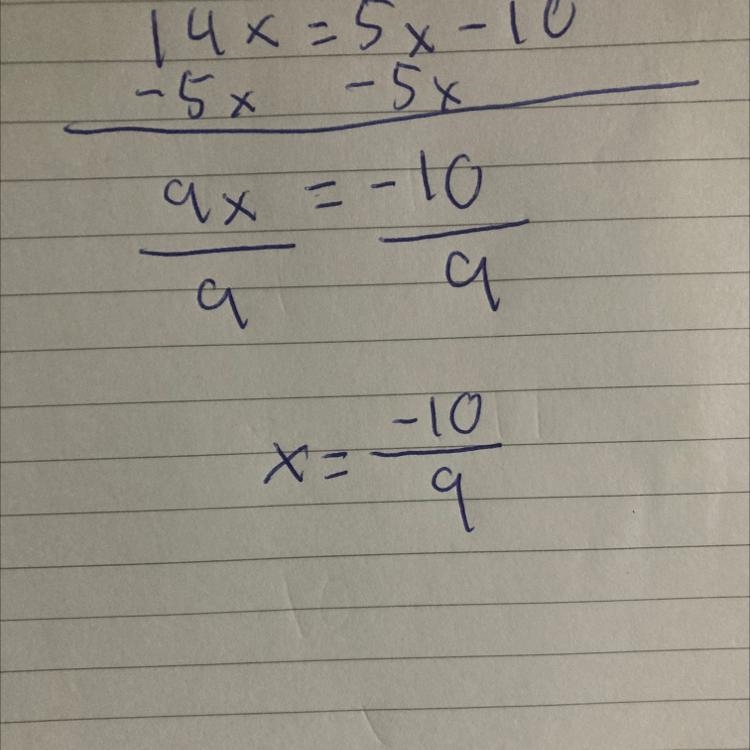 14x = 5x - 10
-5x -5x
9x = -10
9 9
x = -10
9